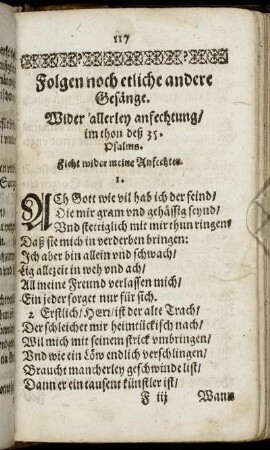 117
Folgen noch etliche andere
Gesänge.
Wider allerley anfechtung/
im thon deß 35.
Psalms.
Ficht wider meine Anfechter.
1.
ACh Gott wie vil hab ich der feind/
Die mir gram vnd gehässig seynd/
Vnd stettiglich mit mir thun ringen/
Daß sie mich in verderben bringen:
Ich aber bin allein vnd schwach/
Lig allezeit in weh vnd ach/
All meine Freund verlassen mich/
Ein jeder sorget nur für sich.
2 Erstlich/ HErr/ ist der alte Trach/
Der schleichet mir heimtückisch nach/
Wil mich mit seinem strick vmbringen/
Vnd wie ein Löw endlich verschlingen/
Braucht mancherley geschwinde list/
Dann er ein tausent künstler ist/
F iij Wann